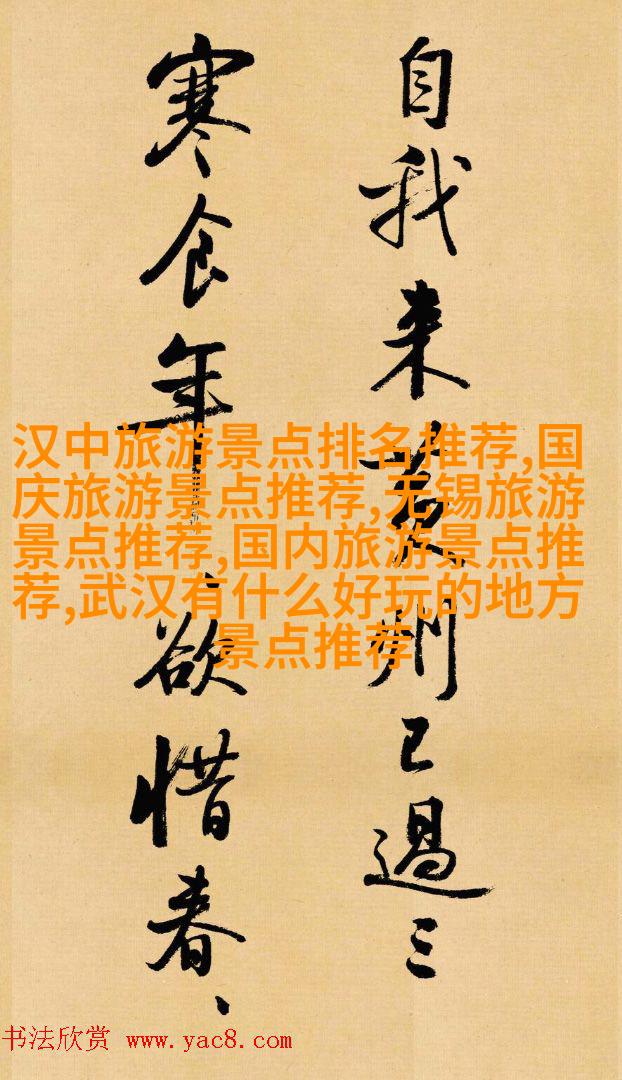 自我来黄州已過三
寒食年、欲惜春、
汉中旅游景点排名推荐,国
庆旅游景点推荐,无锡旅游
景点推荐,国内旅游景点推
荐,武汉有什么好玩的地方
景点推荐
书法欣赏 www.yac8.com